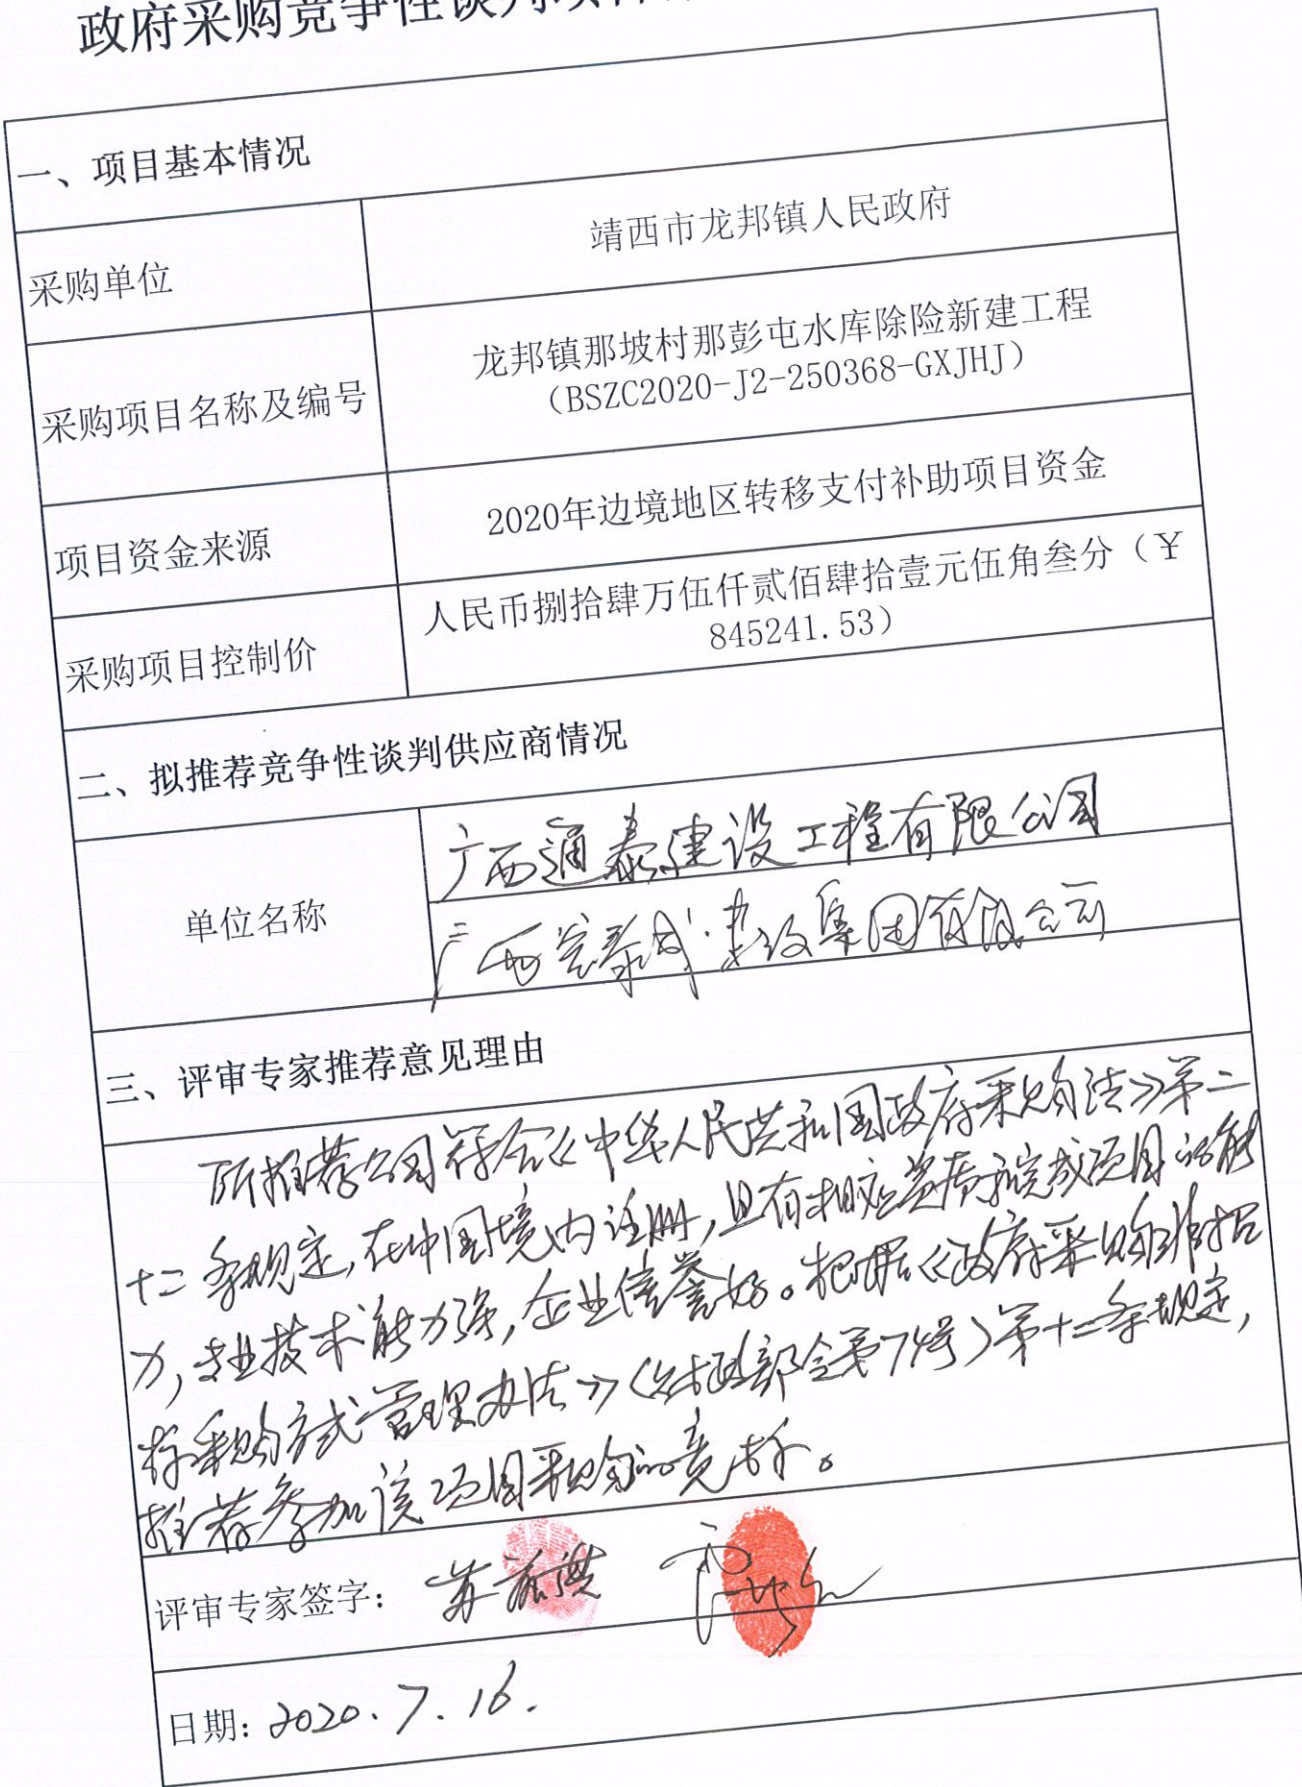 政府采购竞争性谈判项目
一、项目基本情况
采购单位
靖西市龙邦镇人民政府
采购项目名称及编号
龙邦镇那坡村那彭屯水库除险新建工程
（BSZC2020-J2-250368-GXJHJ）
项目资金来源
2020年边境地区转移支付补助项目资金
采购项目控制价
人民币捌拾肆万伍仟贰佰肆拾壹元伍角叁分（￥
845241.53）
二、拟推荐竞争性谈判供应商情况
单位名称
广西通泰建设工程有限公司
广西宏泰成建设集团有限公司
三、评审专家推荐意见理由
所推荐公司符合《中华人民共和国政府采购法》第二
十二条规定,在中国境内注册,且有相应资质和完成项目的能
力,专业技术能力强,企业信誉好。根据《政府采购非招
标采购方式管理办法》(财政部令第74号)第十二条规定,
推荐参加该项目采购的竞标。
评审专家签字：
日期：2020.7.16.